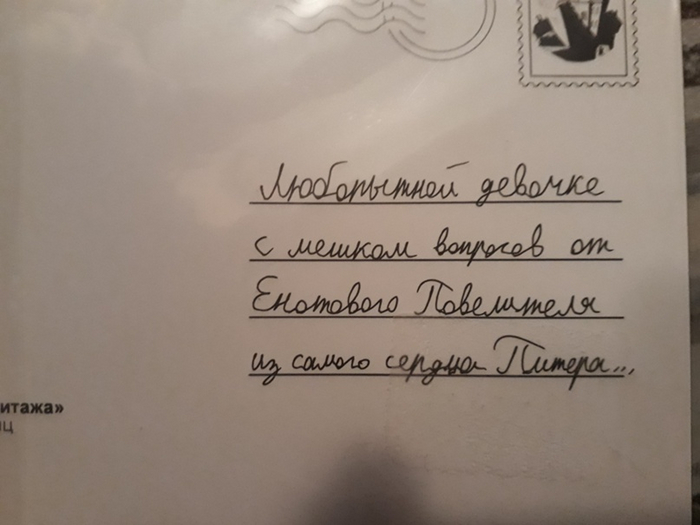 Любопытной девочке
с мешком вопросов от
Енотового Повелителя
из самого сердца Питера...
итажа»
иц